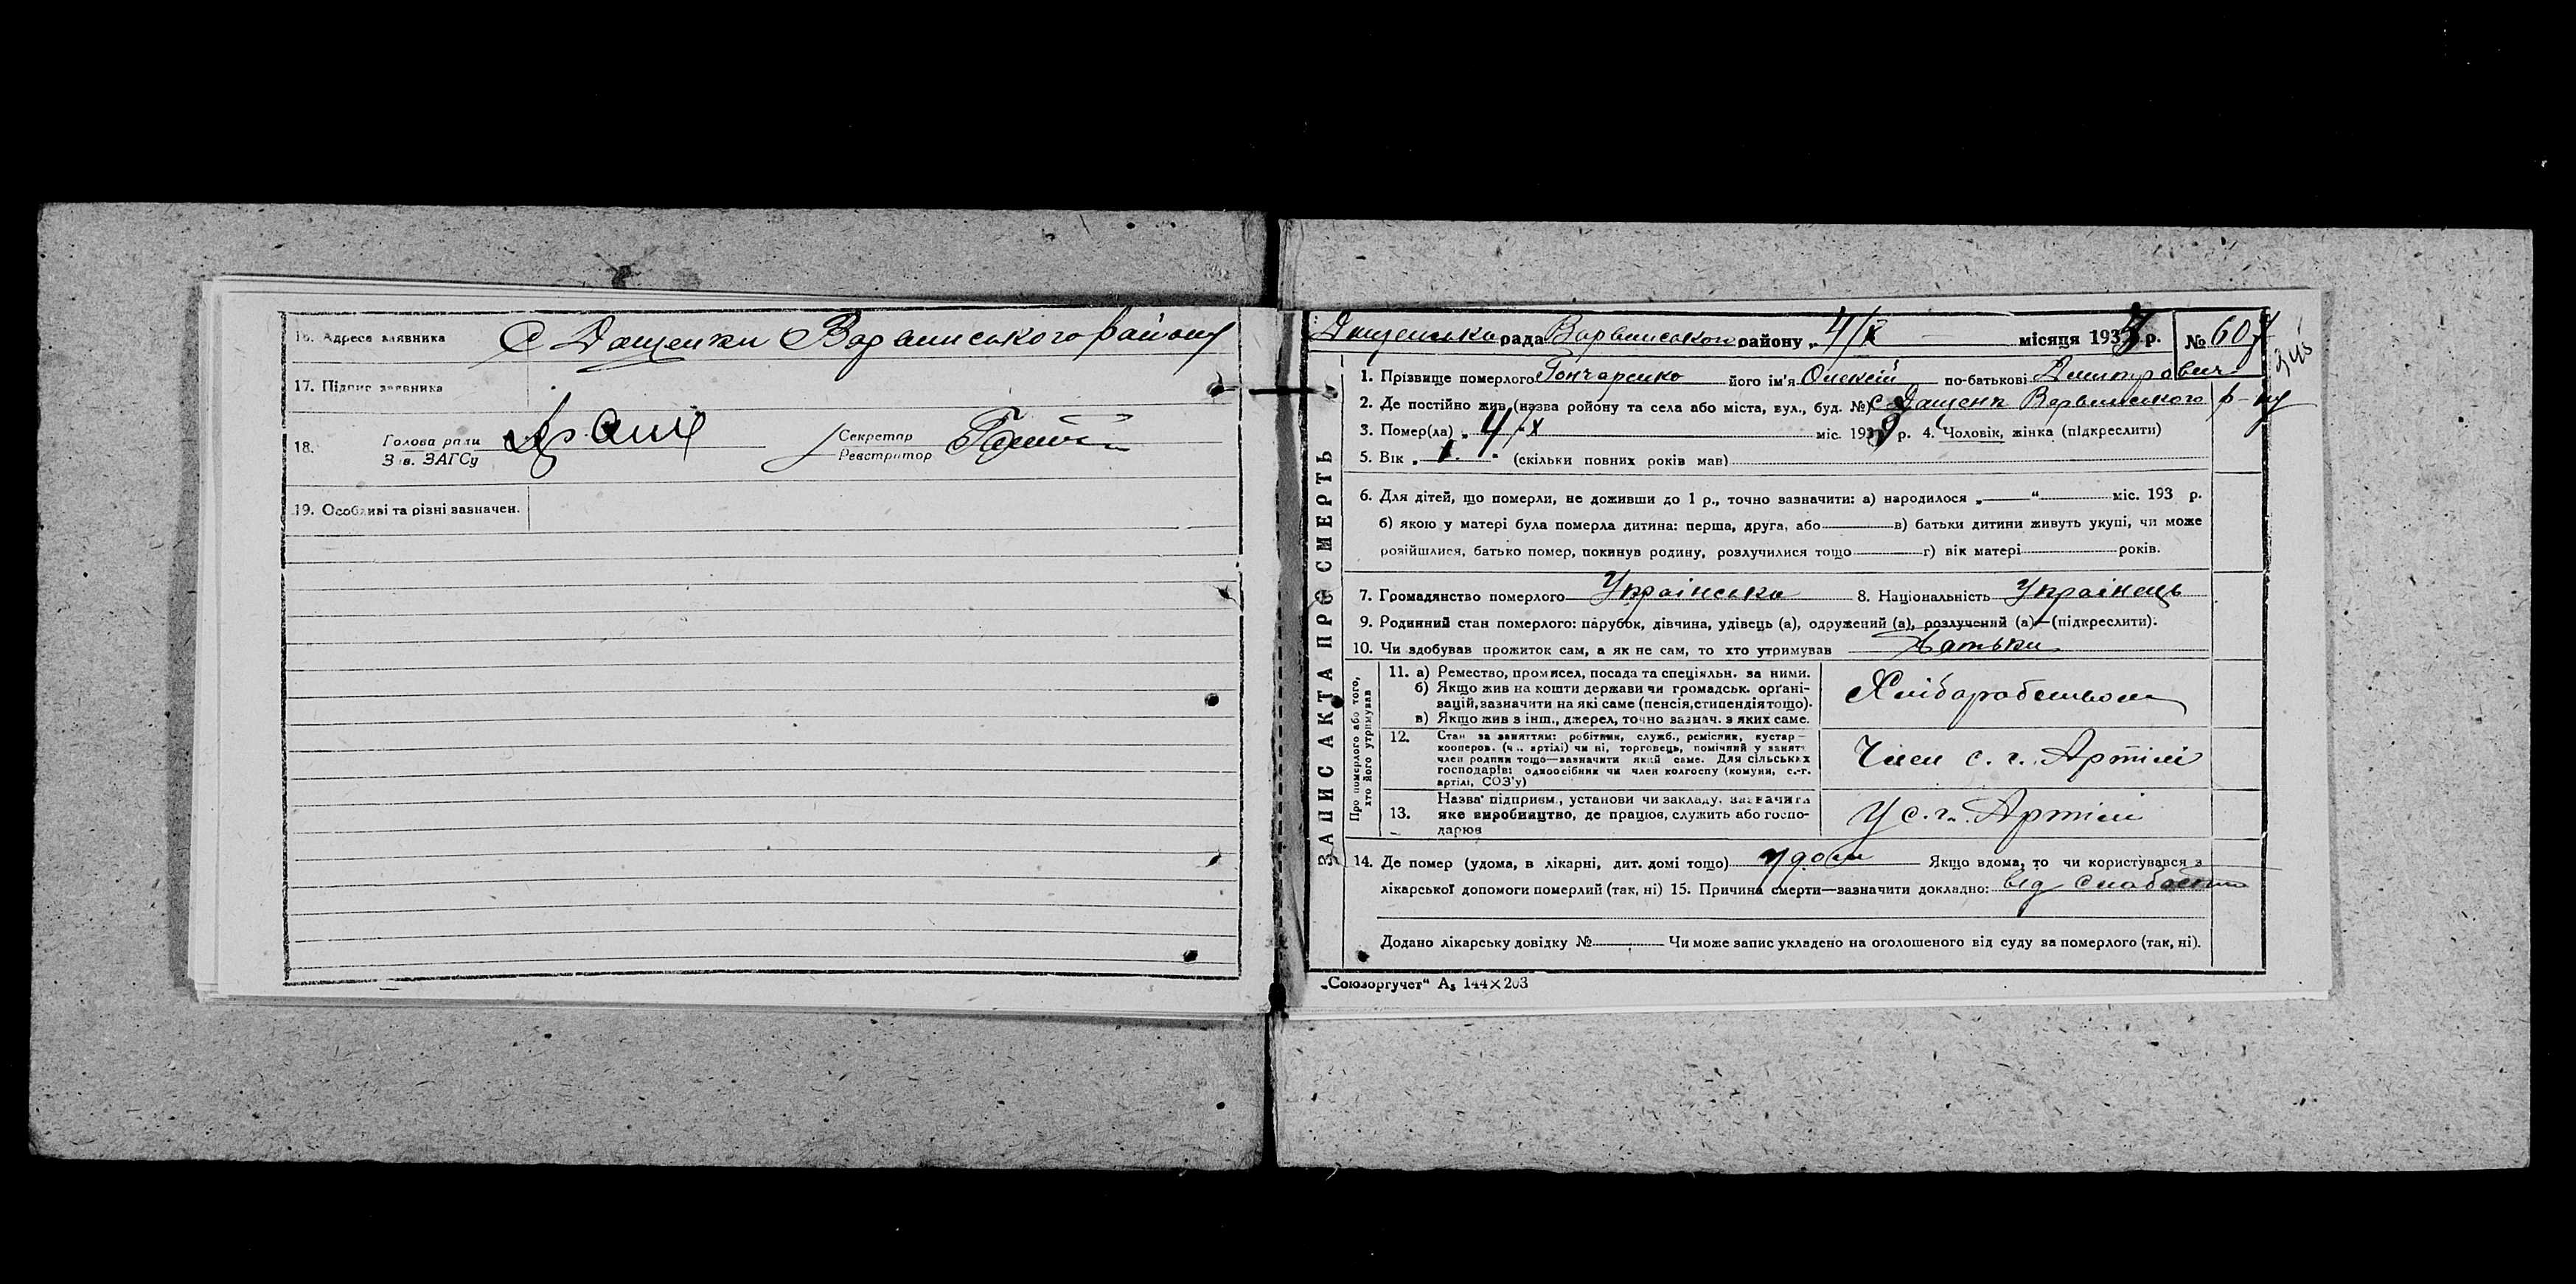 16. Адреса заявника С Дащенки Варвинського району
17. Підпис заявника
18. Голова ради Секретар
Зав. ЗАГСу Реєстратор
19. Особливі та різні зазначен.
ЗАПИС АКТА ПРО СМЕРТЬ
Дащенська рада Варвинського району „4/X місяця 193 р. № 607
345
1. Прізвище померлого Гончаренко його ім'я Олексій по-батькові Дмитрович
2. Де постійно жив (назва ройону та села або міста, вул., буд. №) С Дащенк Варвинського р-ну
3. Помер(ла) „ 4/X міс. 193 р. 4. Чоловік, жінка (підкреслити)
5. Вік „ 1. " (скільки повних років мав)
6. Для дітей, що померли, не доживши до 1 р., точно зазначити: а) народилося „ " міс. 193 р.
б) якою у матері була померла дитина: перша, друга, або в) батьки дитини живуть укупі, чи може
розійшлися, батько помер, покинув родину, розлучилися тощо г) вік матері років.
7. Громадянство померлого Українська 8. Національність Українець
9. Родинний стан померлого: парубок, дівчина, удівець (а), одружений (а), розлучений (а)—(підкреслити).
10. Чи здобував прожиток сам, а як не сам, то хто утримував Батьки
Про померлого або того,
хто його утримував
11. а) Ремество, промисел, посада та спеціяльн. за ними.
б) Якщо жив на кошти держави чи громадськ. орґані-
зацій, зазначити на які саме (пенсія, стипендія тощо).
в) Якщо жив з інш., джерел, точно зазнач. з яких саме.
Хліборобством
12. Стан за заняттям: робітник, служб., ремісник, кустар—
кооперов. (ч.. артілі) чи ні, торговець, помічний у занятт
член родини тощо—зазначити який саме. Для сільських
господарів: одноосібник чи член колгоспу (комуни, с.-г.
артілі, СОЗ'у)
Член с. г. Артілі
13. Назва підприєм., установи чи закладу. зазначити
яке виробництво, де працюв, служить або госпо-
дарюв
У с. г. Артілі
14. Де помер (удома, в лікарні, дит. домі тощо) удома Якщо вдома, то чи користувався з
лікарської допомоги померлий (так, ні) 15. Причина смерти—зазначити докладно: від слабости
Додано лікарську довідку № Чи може запис укладено на оголошеного від суду за померлого (так, ні).
„Союзоргучет" А₅ 144×203